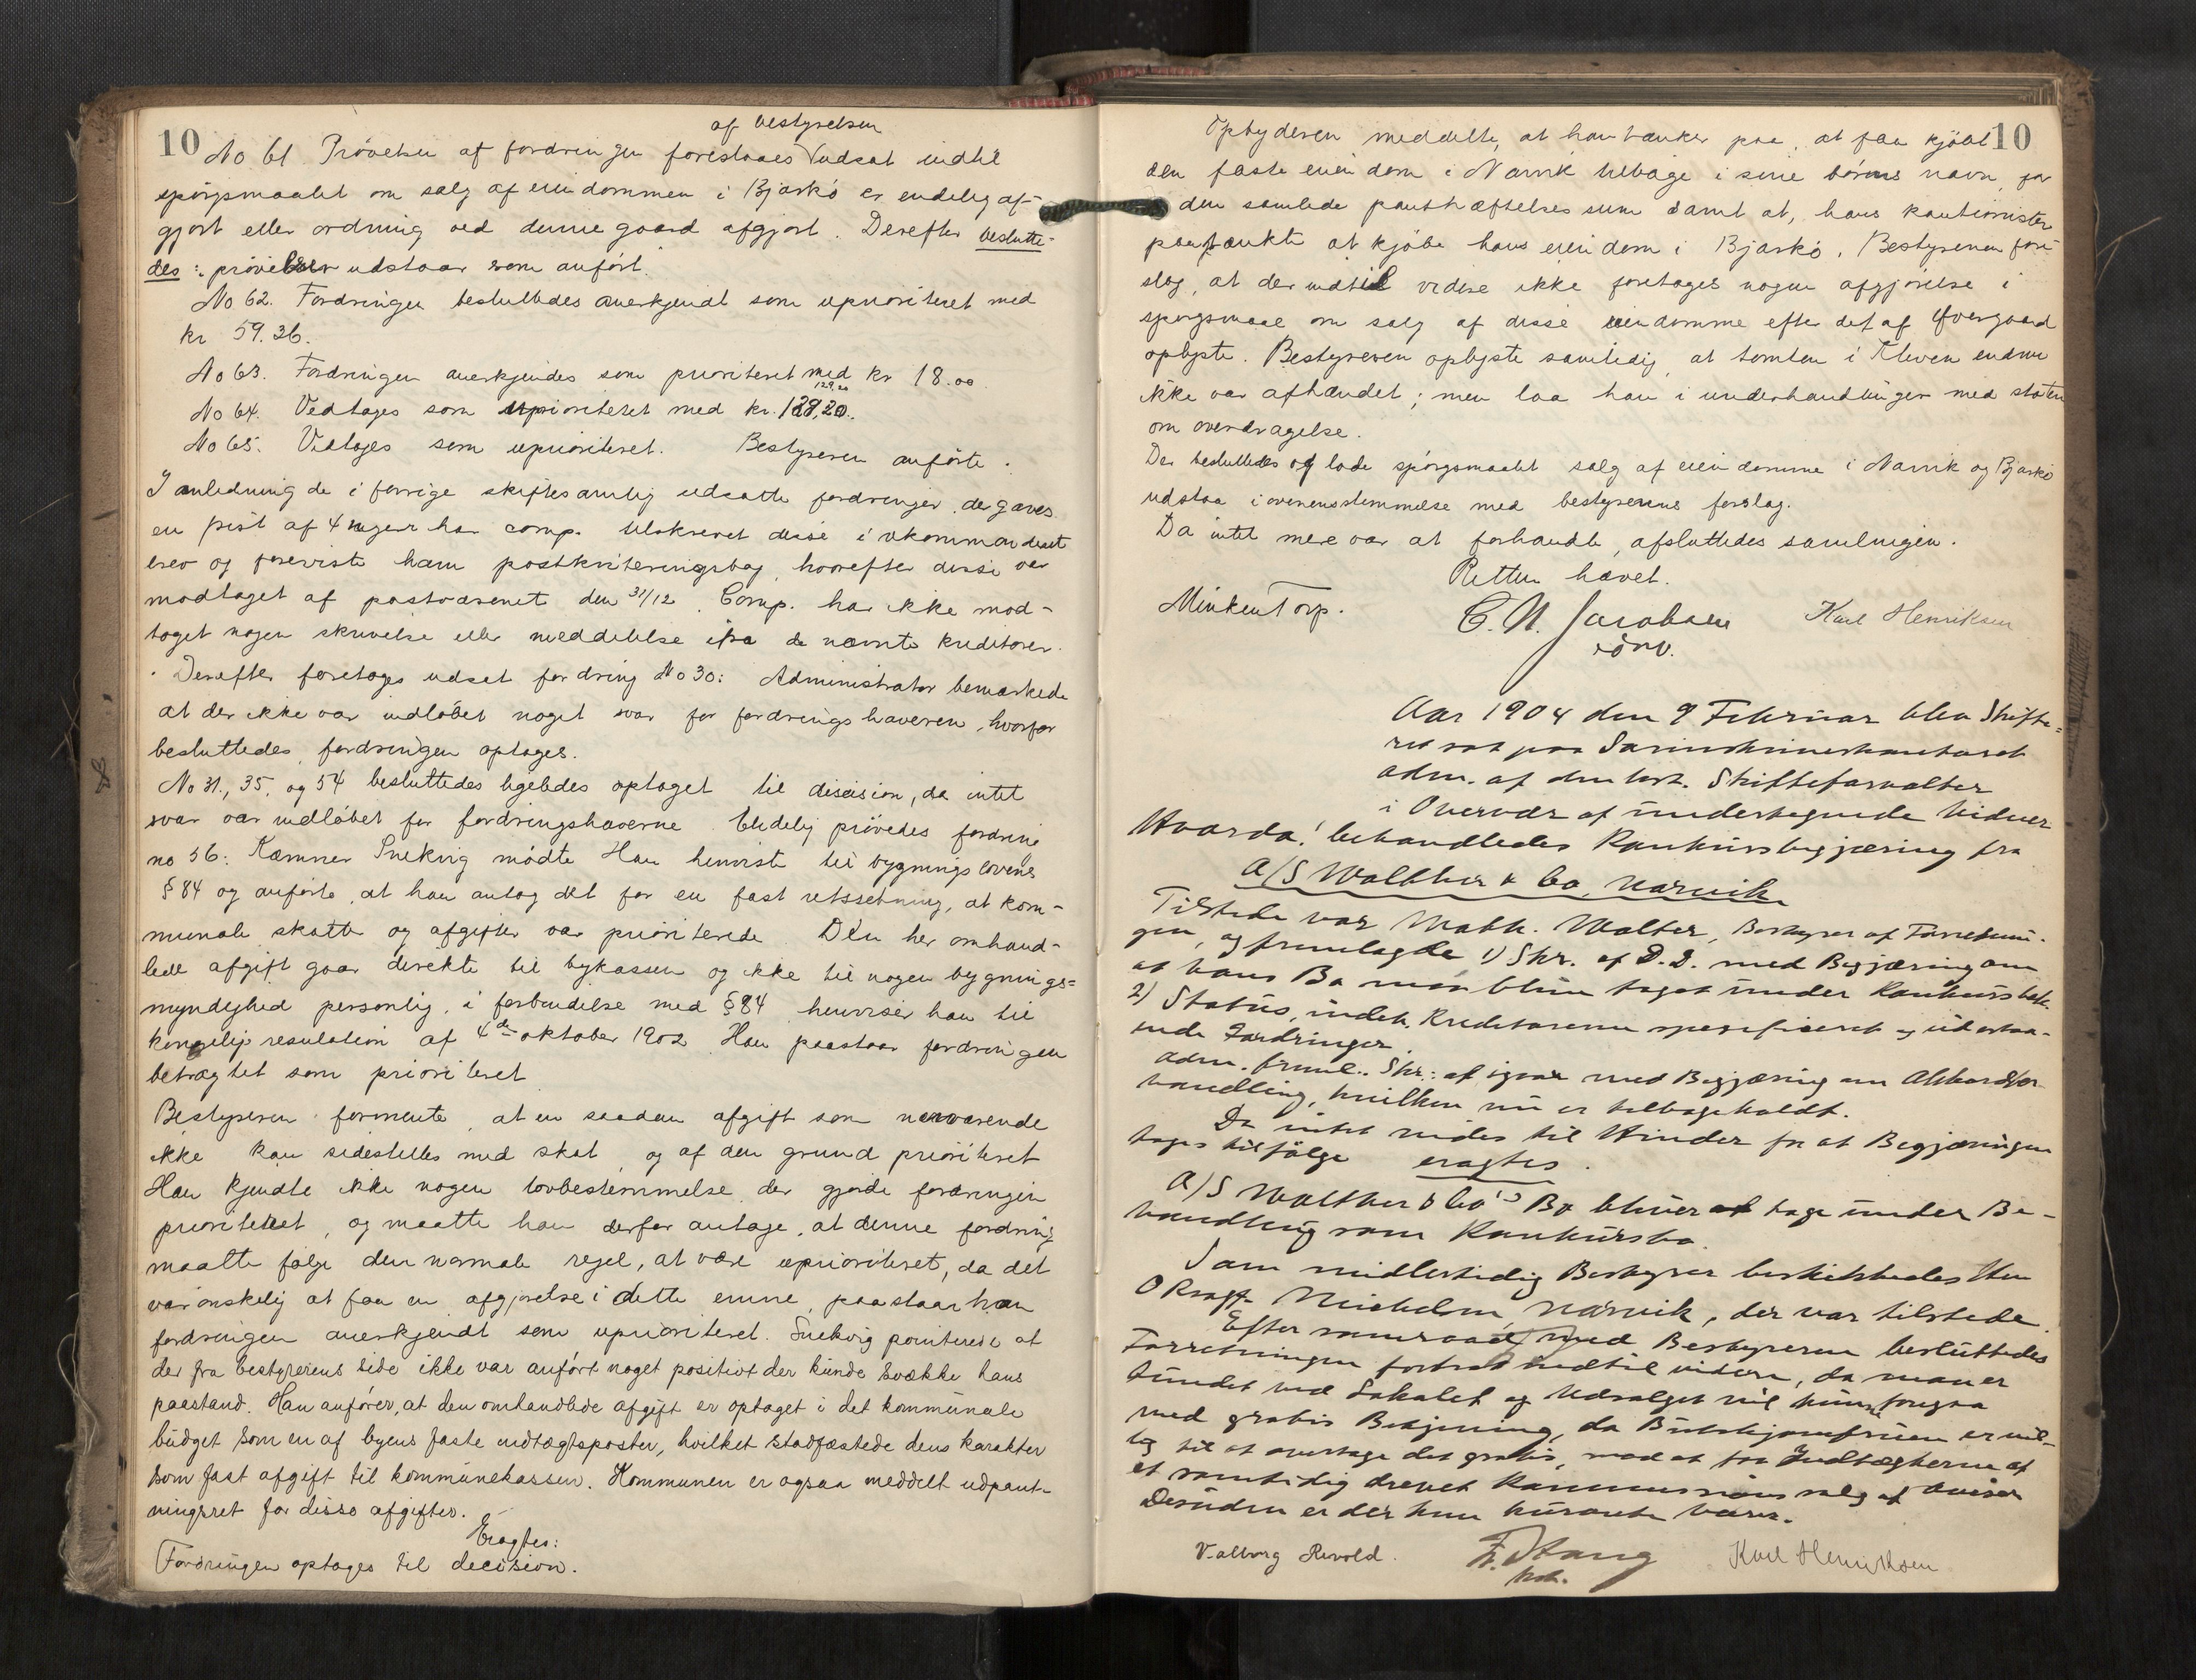 10
af bestyrelsen
No 61 Prövelsen af fordringen foreslaaes udsat indtil
spörgsmaalet om salg af eiendommen i Bjarkö er endelig af-
gjort eller ordning ved denne gaard afgjort. Derefter beslutte-
des: prövelsen udstaar som anfört.
No 62. Fordringen besluttedes anerkjendt som uprioriteret med
kr 59.36.
No 63. Fordringen anerkjendes som prioriteret med kr 18.00.
129,20
No 64. Vedtages som uprioriteret med kr. 129,20.
No 65. Vedtages som uprioriteret. Bestyreren anförte:
I anledning de i forrige skiftesamling udsatte fordringer, der gaves
en frist af 4 uger har comp. tilskrevet disse i rekommanderet
brev og foreviste ham postkvitteringsbog, hvorefter disse var
modtaget af postvæsenet den 31/12. Comp. har ikke mod-
taget nogen skrivelse eller meddelelse ifra de nævnte kreditorer.
Derefter foretoges udsat fordring No 30: Administrator bemærkede
at der ikke var indløbet noget svar for fordringshaveren, hvorfor
besluttedes, fordringen optages.
No 31, 35, og 54 besluttedes ligeledes optaget til discision, da intet
svar var indløbet for fordringshaverne. Endelig prövedes fordring
no 56: Kæmner Snekvig mödte. Han henviste til bygningslovens
§ 84 og anförte, at han antog det for en fast retssetning, at kom-
munale skatte og afgifter var prioriterede. Den her omhand-
lede afgift gaar direkte til bykassen og ikke til nogen bygnings=
myndighed personlig, i forbindelse med § 84 henviser han til
kongelig resulation af 4de oktober 1902. Han paastaar fordringen
betragtet som prioriteret
Bestyreren formente, at en saadan afgift som nærværende
ikke kan sidestilles med skat, og af den grund prioriteret
Han kjendte ikke nogen lovbestemmelse, der gjorde fordringen
prioriteret, og maatte han derfor antage, at denne fordring
maatte følge den normale regel, at være uprioriteret, da det
var ønskelig at faa en afgjørelse i dette emne, paastaar han
fordringen anerkjendt som uprioriteret. Snekvig pointerede at
der fra bestyrerens side ikke var anfört noget positivt der kunde svække hans
paastand. Han anförer, at den omhandlede afgift er optaget i det kommunale
budget som en af byens faste indtægtsposter, hvilket stadfæstede dens karakter
som fast afgift til kommunekassen. Kommunen er ogsaa meddelt udpant-
ningsret for disse afgifter.
Eragtes:
Fordringen optages til decision.
10
Opbyderen meddelte, at han tænker paa, at faa kjöbt
den faste eiendom i Narvik tilbage i sine börns navn, for
den samlede panthæftelses sum samt at, hans kautionister
paatænkte at kjöbe hans eiendom i Bjarkö. Bestyreren fore-
slog, at der indtil videre ikke foretages nogen afgjörelse i
spörgsmaal om salg af disse eiendomme efter det af Overgaard
oplyste. Bestyreren oplyste samtidig, at tomten i Kleven endnu
ikke var afhændet; men laa han i underhandlinger med staten
om overdragelse.
Der besluttedes at lade spörgsmaalet salg af eiendomme i Narvik og Bjarkö
udstaa i overensstemmelse med bestyrerens forslag.
Da intet mere var at forhandle, afsluttedes samlingen.
Retten hævet.
Minken Torp. C. N. Jacobsen Karl Henriksen
sörv.
Aar 1904 den 9 Februar blev Skifte=
ret sat paa Sorenskriverkontoret
adm. af den kst. Skifteforvalter
i Overvær af undertegnede Vidner
Hvorda: behandledes Konkursbegjæring fra
A/S Walther & Co, Narvik
Tilstede var Math. Walter, Bestyrer af Forretnin-
gen, og fremlagde 1) Skr. af D.D. med Begjæring om
at hans Bo maa blive taget under Konkursbeh.
2) Status, indeh. Kreditorerne spesifiseret og udestaa-
ende Fordringer.
Adm. freml. Skr. af igaar med Begjæring om Akkordfor-
handling, hvilken nu er tilbagekaldt.
Da intet vides til Hinder for at Begjæringen
tages tilfölge eragtes.
A/S Walther & Co's Bo bliver at tage under Be-
handling som Konkursbo.
Som midlertidig Bestyrer beskikkedes Hr.
O Rsagf. Michelsen, Narvik, der var tilstede.
Efter samraad med Bestyreren besluttedes
Forretningen fortsat indtil videre, da man er
bundet ved Lokalet og Udsalget vil kunne foregaa
med gratis Betjening, da Butikjomfruen er vil-
lig til at overtage det gratis, mod at faa Indtægterne af
et samtidig drevet Kommissionssalg af aviser
Desuden er der kun kurante Varer.
Valborg Revold. F. Stang Karl Henriksen
kst.